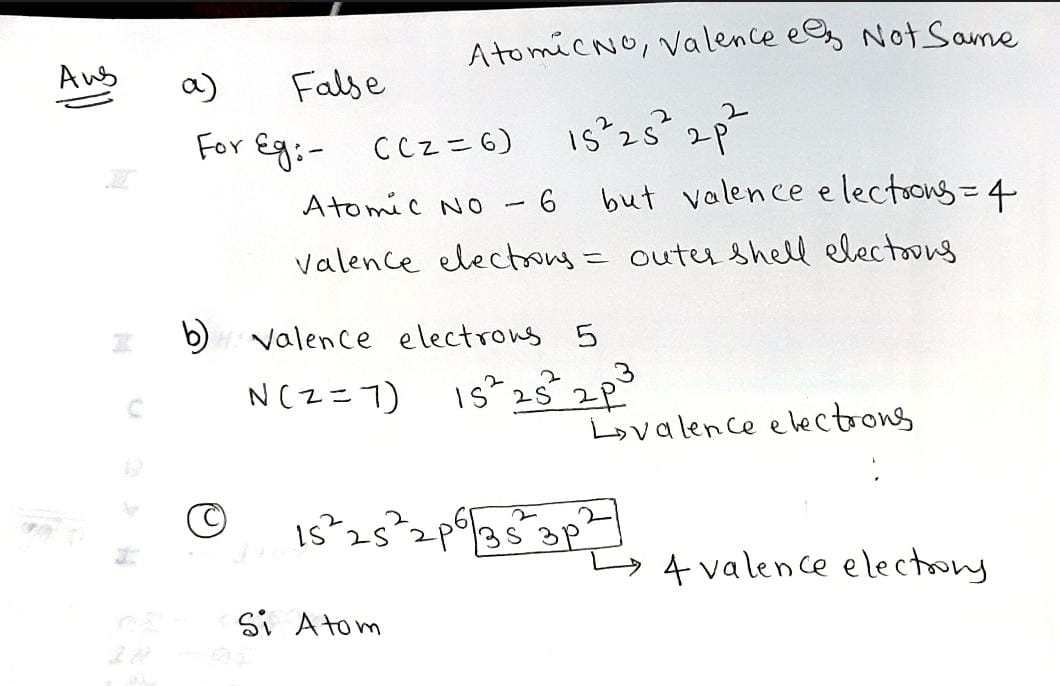 Atomic NO, Valence e⊖s Not Same
Ans a) False
For Eg:- C(z=6) 1s² 2s² 2p²
Atomic NO - 6 but valence electrons = 4
valence electrons = outer shell electrons
b) Valence electrons 5
N(z=7) 1s² 2s² 2p³
↳ valence electrons
(c) 1s² 2s² 2p⁶ 3s² 3p²
↳ 4 valence electrons
Si Atom